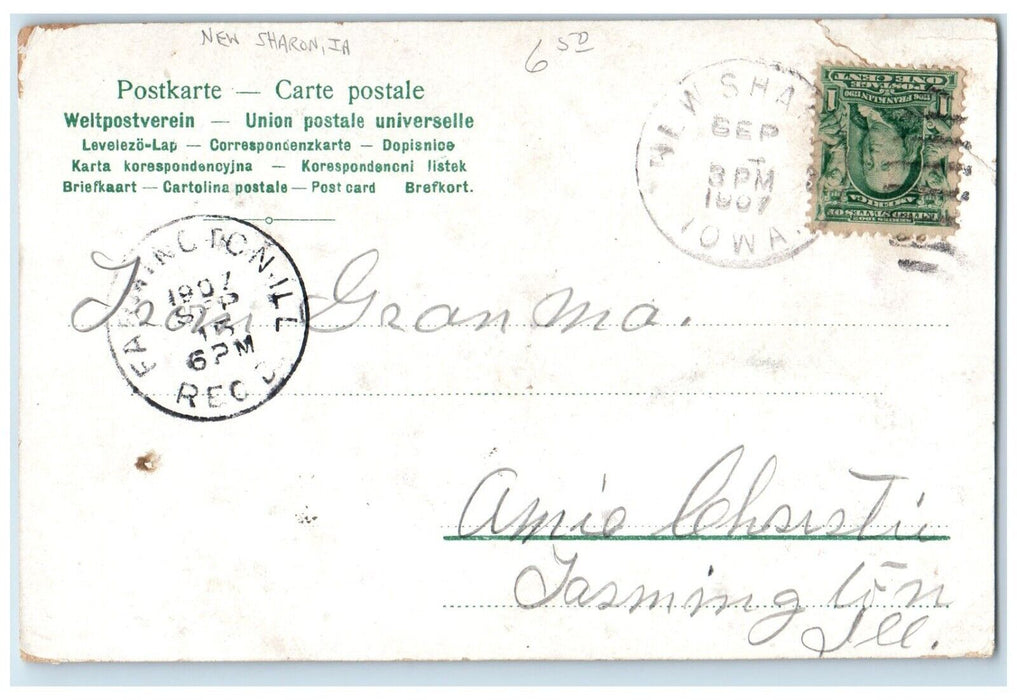 NEW SHARON, IA
6 50
Postkarte — Carte postale
Weltpostverein — Union postale universelle
Levelezö-Lap — Correspondenzkarte — Dopisnice
Karta korespondencyjna — Korespondencni listek
Briefkaart — Cartolina postale — Post card Brefkort.
NEW SHA
SEP
3 PM
1907
IOWA
POSTAGE
ONE CENT
1
1
1706 FRANKLIN 1790
UNITED STATES OF
AMERICA
FARMINGTON. ILL
1907
SEP
15
6 PM
REC'D.
From Gran Ma.
Amie Christie
Farmington
Ill.